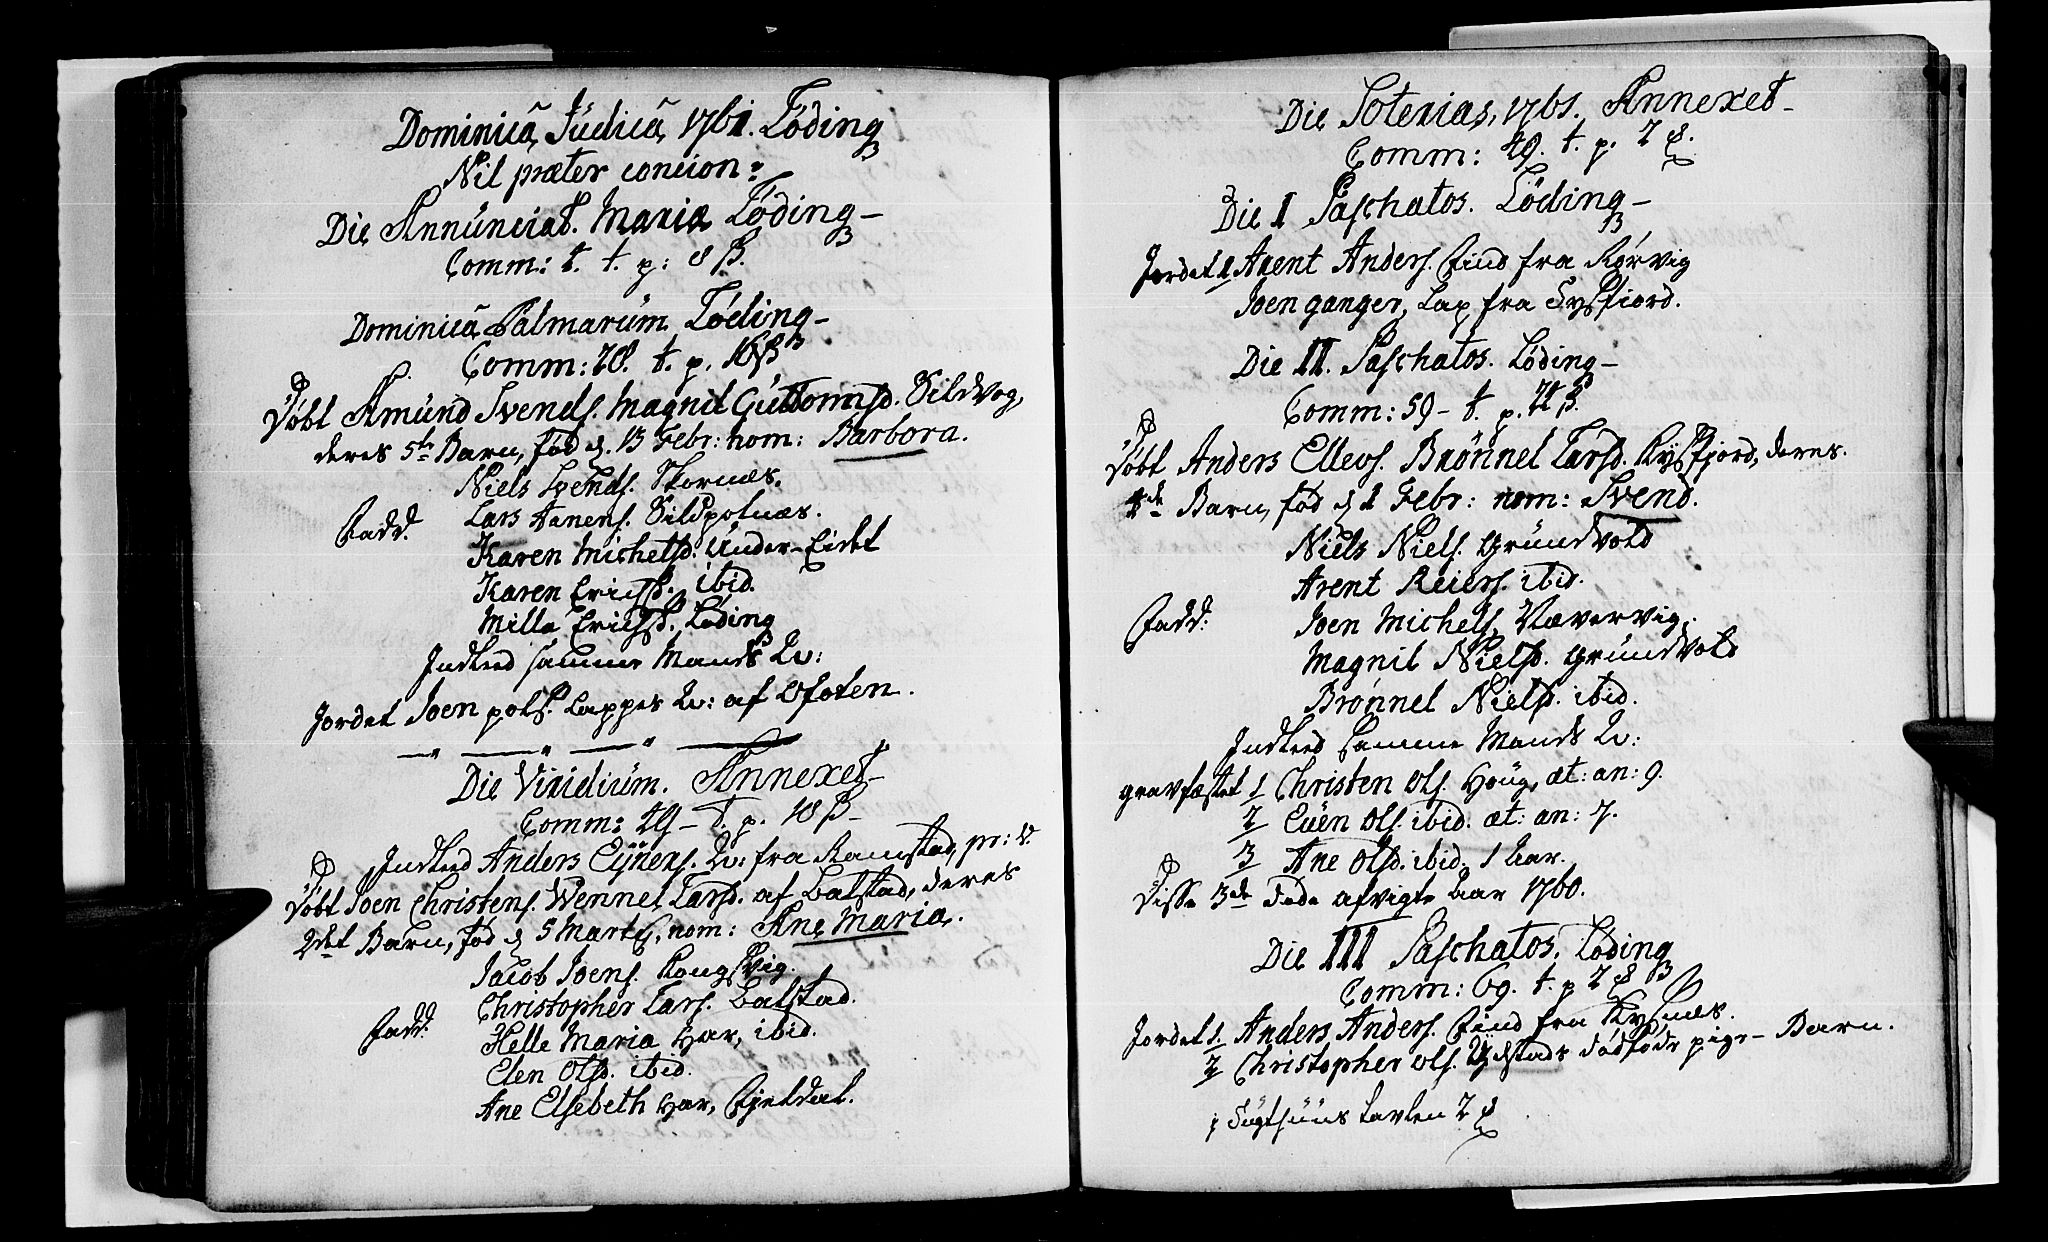 Dominica Judica 1761. Løding
Nil præter concion:
Die Annunciat. Mariæ Løding-
Comm: t. t. p: 8 ß.
Dominica Palmarum Løding-
Comm: 28. t. p. 16 ß
Døbt Amund Svends. Magnil Guttormsd. Sildvog,
deres 5te Barn, fød d. 13 Febr: nom: Barbora.
Niels Svends. Skornæs.
Fadd. Lars Arnens. Sildpolnæs.
Karen Michelsd. Under-Eidet
Karen Erichsd. ibid.
Mille Erichsd. Løding
Indleed samme Mands K:
Jordet Joen pols. Lappes K: af Ofoten.
Die Viridium. Annexet-
Comm: 29 - t. p. 18 ß-
Indleed Anders Eyners. K: fra Ramstad, pr: v.
Døbt Joen Christens. Wennel Larsd. af Balstad, deres
2det Barn, fød d 5 Martij, nom: Ane Maria.
Jacob Joens. Kongsvig.
Christopher Lars. Balstad.
Fadd. Helle Maria Har, ibid.
Elen Olsd. ibid.
Ane Elsebeth Har, Fjeldal.
Die Soterias, 1761. Annexet-
Comm: 49. t. p. 2
Die I Paschatos. Løding-
Jordet 1 Arent Anders. Find fra Rørvig
Joen ganger, Lap fra Tysfiord.
Die II. Paschatos. Løding-
Comm: 59 - t. p. 22 ß.
Døbt Anders Ellevs. Brønnel Larsd. Kysfjord, deres
4de Barn, fød d 1 Febr: nom: Svend.
Niels Niels. Grundvold
Arent Reiers. ibid.
Fadd: Joen Michels. Vævervig.
Magnil Nielsd. Grundvold
Brønnel Nielsd. ibid.
Indleed samme Mands K:
gravfæstet 1 Christen Ols. Houg, æt: an: 9.
2 Euen Ols. ibid. æt: an: 7.
3 Ane Olsd. ibid. 1 Aar.
Disse 3de døde afvigte Aar 1760.
Die III Paschatos. Løding
Comm: 69. t. p 2
Jordet 1. Anders Anders. Find fra Kysnæs.
2 Christopher Ols. Ydstads dødfødde pige-Barn.
i Sygehuus tavlen 2